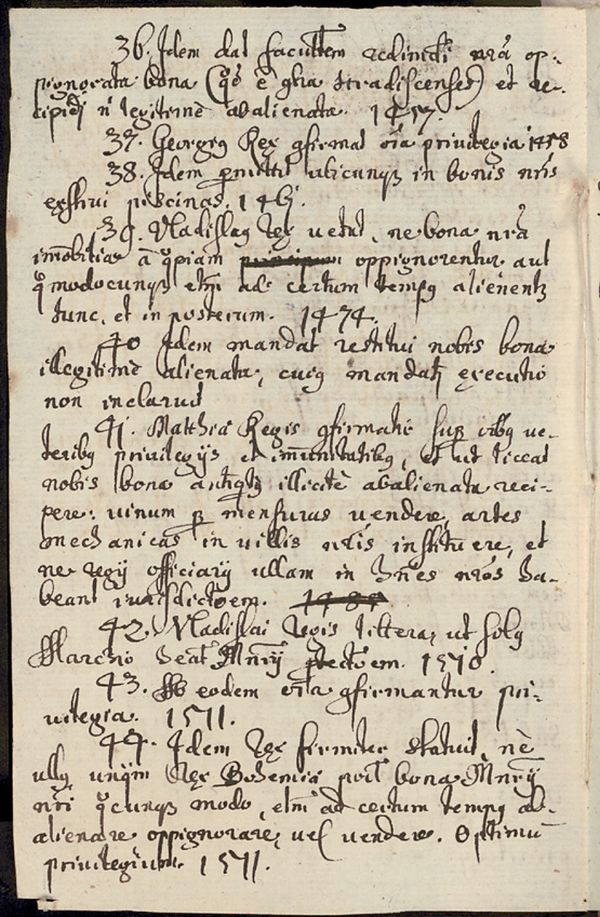 36. Idem dat facultem redimendi nrã op-
pignorata bona (qõ ẽ gha Stradiscenses) et re-
cipiendi legitimè abalienata. 1457.
37. Georgeg Rex gfirmat oia privilegia 1458
38. Idem pmittit ubicunqz in bonis nris
exstrui piscinas. 146j.
39. Vladislag Rex vetat, ne bona nrã
imobilia ã qopiam oppignorentur aut
qomodocunqz etm ad certum tempg alienentz
tunc, et in posterum. 1474.
40 Idem mandat restitui nobis bona
illegitimè alienata, cuig mandati executio
non inclaruit
41. Matthiæ Regis gfirmatio sup oibg ve-
teribg privilegijs et imunitatibg, et ut liceat
nobis bona antiqitg illicitè abalienata reci-
pere: vinum p mensuras vendere, artes
mechanicas in villis nris instituere, et
ne regij officiarij ullam in hnes nros ha-
beant iurisdictoem.
42. Vladislai Regis litteræ, ut solg
Marchio heat Mnrij ptectoem. 1510.
43. Ab eodem oia gfirmantur pri-
vilegia. 1511.
44. Idem Rex firmiter statuit, nè
ullg unqm Rex Bohemiæ poit bona Mnrij
nri qocunqz modo, etm ad certum tempg ab-
alienare oppignorare, vel vendere. Optimũ
privilegium. 1511.